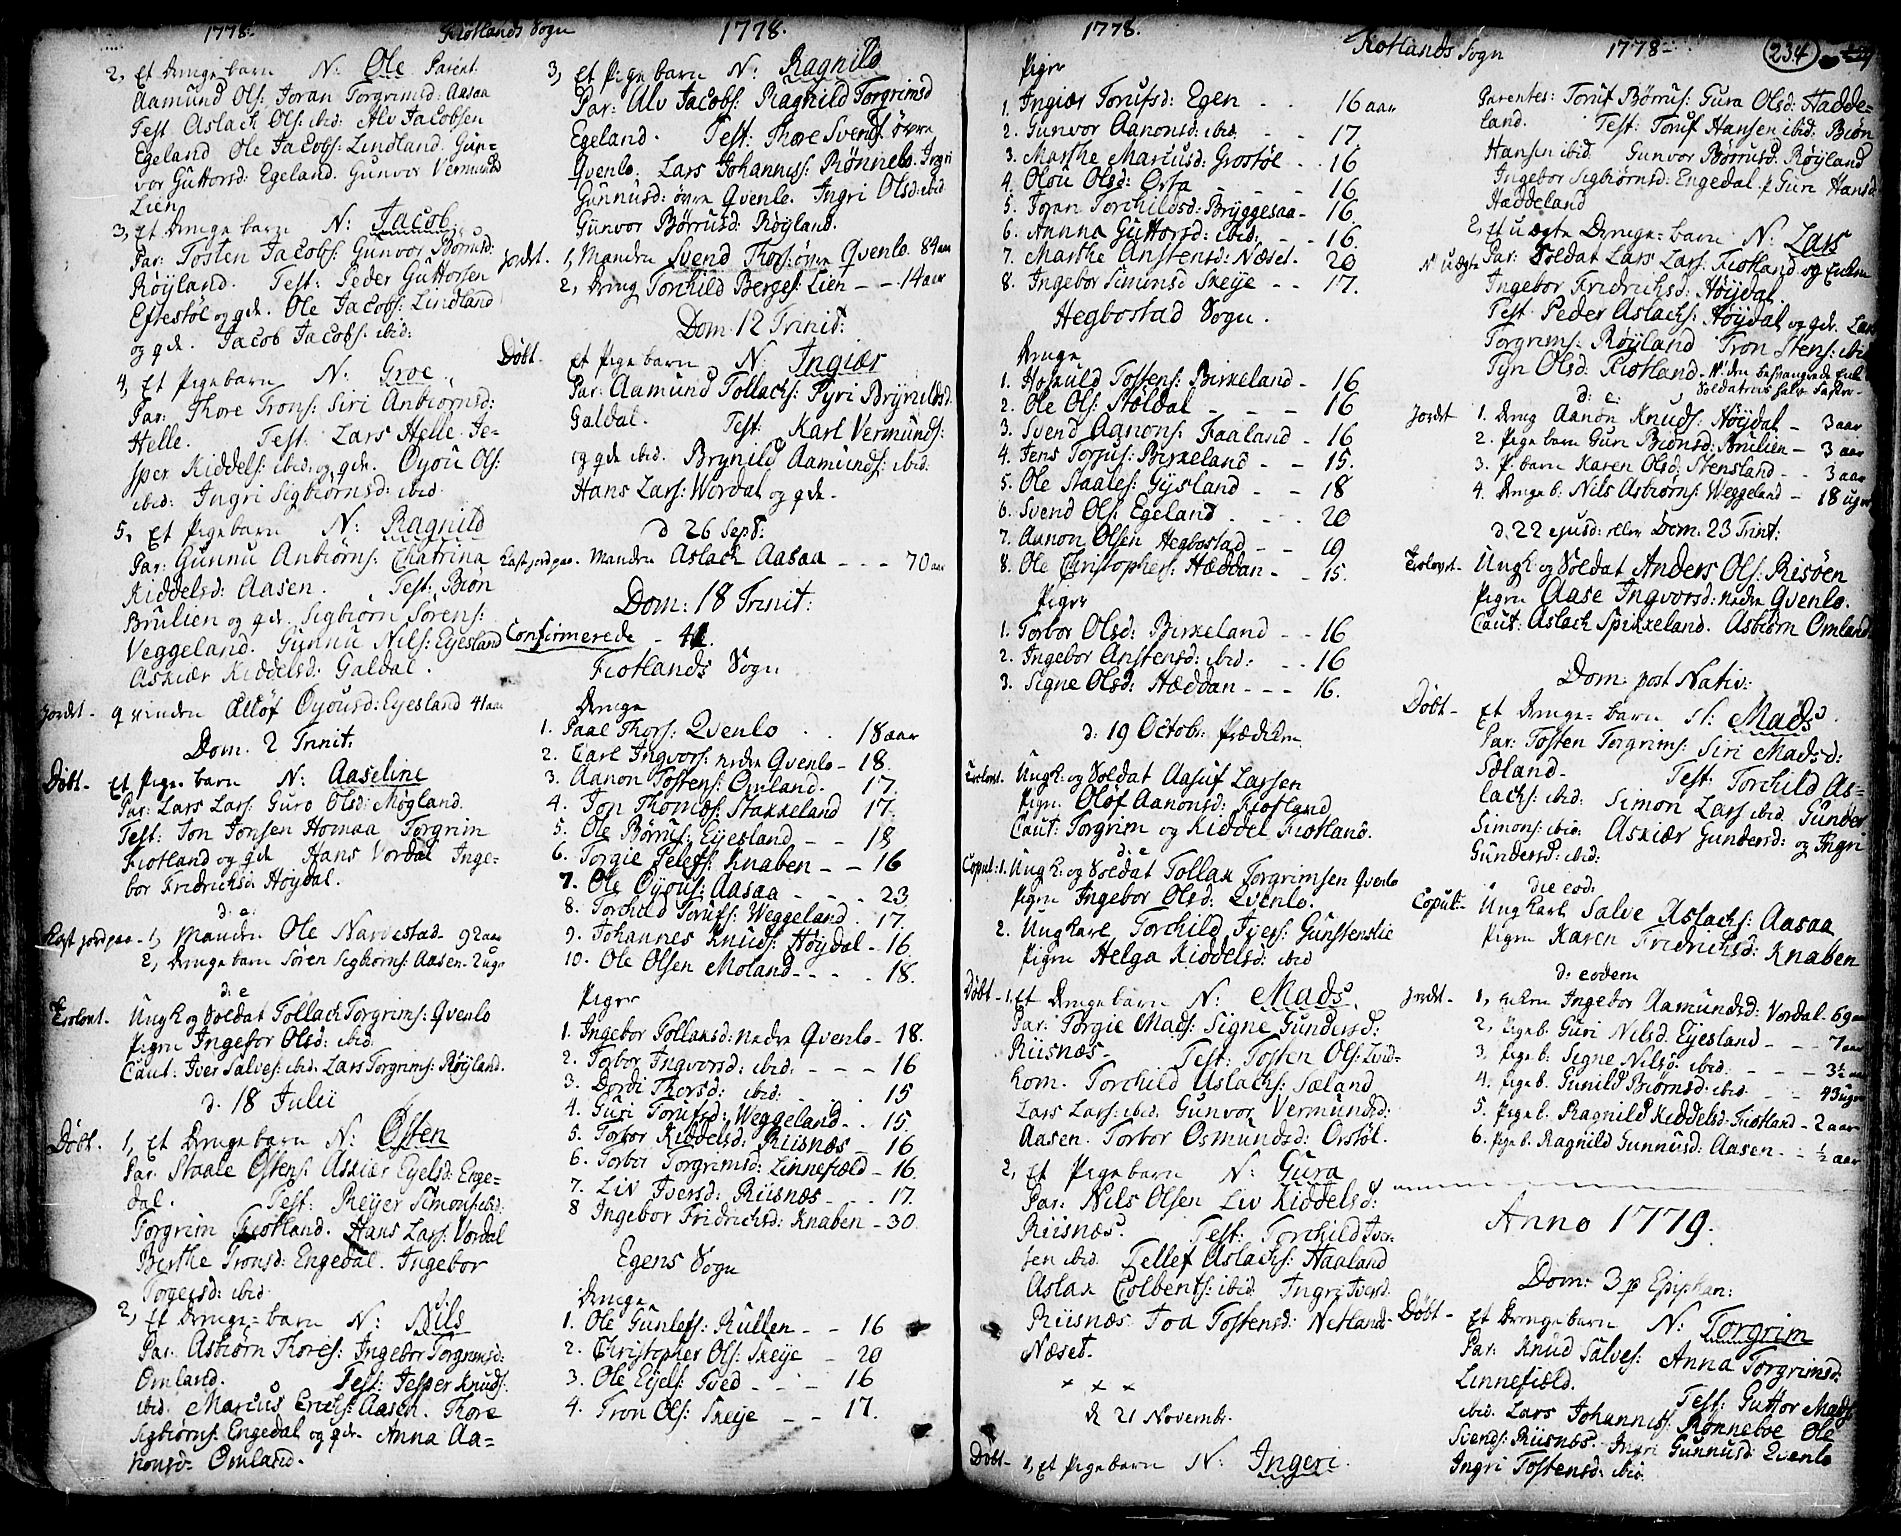 1778.
Fiotlands Sogn
1778.
2, Et Drengebarn N: Ole Parent.
Aamund Ols: Joran Torgrimsd: Aasaa
Test. Aslach Ols: ibid: Alv Jacobsen
Egeland Ole Jacobs: Lindland. Gun=
vor Guttorsd: Egeland. Gunvor Vermunds
Lien
3, Et Drengebarn N: Jacob
Par: Tosten Jacobs: Gunvor Børrusd:
Røyland. Test: Peder Guttorsen
Eftestøl og qde. Ole Jacobs: Lindland
og qde. Jacob Jacobs: ibid:
4, Et Pigebarn N: Groe
Par: Thore Trons: Siri Anbiornsd:
Helle. Test: Lars Helle. Je=
sper Kiddels: ibid: og qde. Oyou Ols:
ibid: Ingri Sigbiørnsd: ibid.
5, Et Pigebarn N: Ragnild
Par: Gunnu Anbiørns: Chatrina
Kiddelsd: Aasen. Test: Biøn
Brulien og qde. Sigbiørn Sørens:
Veggeland. Gunnu Nils: Eyesland
Askiær Kiddelsd: Galdal.
Jordet - qvinden Alløf Oyousd: Eyesland 41 aar
Dom. 2 Trinit:
Døbt - Et Pige barn N: Aaseline
Par: Lars Lars: Guro Olsd: Møgland.
Test: Jon Jonsen Homaa Torgrim
Fiotland og qde Hans Vordal Inge=
bor Fridrichsd: Høydal.
d: e:
Kast jord paa - 1, Manden Ole Narvestad - 92 aar
2, Drengebarn Søren Sigbiorns: Aasen. 2 uger
d: e
Trolovt. Ungk og Soldat Tollach Torgrims: Qvenlo
Pigen Ingebor Olsd: ibid:
Caut: Iver Salves: ibid. Lars Torgrims: Røyland.
d. 18 Julii
Døbt. 1, Et Drengebarn N: Østen
Par. Staale Østens: Askier Eyelsd: Enge=
dal. Test: Reyer Simons: ibid:
Torgrim Fiotland. Hans Lars: Vordal
Berthe Tronsd: Engedal. Ingebor
Torgersd: ibid.
2, Et Drenge=barn N: Nils
Par. Asbiørn Thores: Ingebor Torgrimsd:
Omland. Test: Jesper Knuds:
ibid. Marcus Erichs: Aasen. Thore
Sigbiorns: Engedal og qde. Anna Aa=
nonsd: Omland.
3, Et Pigebarn N: Ragnild
Par: Alv Jacobs: Ragnild Torgrimsd
Egeland. Test: Thore Svends øvre
Qvenlo. Lars Johannis: Rønneboe. Ingri
Gunnusd: øvre Qvenlo. Ingri Olsd: ibid
Gunvor Børrusd: Røyland.
Jordet. 1, Manden Svend Thors: øvre Qvenlo 84 aar
2, Dreng Torchild Berges: Lien - - 14 aar
Dom. 12 Trinit:
Døbt - Et Pigebarn N: Ingiær
Par: Aamund Tollachs: Pyri Brynildsd.
Galdal. Test: Karl Vermunds:
og qde ibid. Brynild Aamunds: ibid.
Hans Lars: Vordal og qde.
d 26 Sept:
Kast jord paa. Manden Aslach Aasaa - - - 70 aar
Dom: 18 Trinit:
Confirmerede - 41.
Fiotlands Sogn
Drenge
1. Paal Thors: Qvenlo . . 18 aar
2. Carl Ingvors: nedre Qvenlo - 18.
3. Aanon Tostens: Omland. 17.
4. Jon Thomes: Stakkeland 17.
5. Ole Børrus: Eyesland - - 18
6. Torgie Pelets: Knaben - - 16
7. Ole Oyous: Aasaa - - - 23.
8. Torchild Torufs: Weggeland . 17.
9. Johannes Knuds: Høydal - 16.
10. Ole Olsen Moland - - - 18.
Piger
1. Ingebor Tollaksd: nedre Qvenlo - 18.
2. Torbor Ingvorsd: ibid: - - - 16
3. Dordi Thorsd: ibid - - - 15
4. Guri Torufsd: Weggeland - . 15.
5. Torbor Kiddelsd: Riisnæs - 16
6. Torbor Torgrimsd: Linnefield - 16.
7. Liv Iversd: Riisnæs - - - 17.
8 Ingebor Fridrichsd: Knaben - 30.
Egens Sogn
Drenge
1. Ole Gunlefs: Rullen - - 16
2. Christopher Ols: Skeije - 20
3. Ole Eyels: Tved - - - 16
4. Tron Ols: Skeije - - 17.
1778.
Fiotlands Sogn
1778
234
Piger
1. Ingiær Torufsd: Egen - . . 16 aar
2. Gunvor Aanonsd: ibid. - - 17.
3. Marthe Marcusd: Grostøl - . 16
4. Olou Olsd: Orta - - - 16
5. Joran Torchildsd: Bryggesaa - 16.
6. Aanna Guttorsd: ibid: - - 16.
7. Marthe Anstensd: Næset. - 20
8. Ingebor Simonsd Skeije - - 17.
Hegbostad Sogn.
Drenge
1. Hoskuld Tostens: Birkeland - 16
2. Ole Ols: Støldal - - - 16
3. Svend Aanons: Faaland - 16
4. Jens Torjus: Birkeland - - 15.
5. Ole Staales: Gysland - - 18
6. Svend Ols: Egeland . - - 20
7. Aanon Olsen Hegbostad - - 19
8. Ole Christophers: Hæddan - - 15.
Piger
1. Torbor Olsd: Birkeland - - 16
2. Ingebor Anstensd: ibid: - - 16
3. Signe Olsd: Hæddan - - - 16.
d. 19 Octobr: Prædiken
Trolovt. Ungk: og Soldat Aasuf Larsen
Pigen Oløf Aanonsd: Fiotland
Caut: Torgrim og Kiddel Fiotland.
d: e
Copul: 1. Ungk: og Soldat Tollak Torgrimsen Qvenlo
Pigen Ingebor Olsd: Qvenlo.
2. Ungkarl Torchild Ivers: Gunstenslie
Pigen Helga Kiddelsd: ibid
Døbt - 1, Et Drengebarn N: Mads
Par: Torgie Mads: Signe Gundersd:
Riisnæs - Test: Tosten Ols: Qvid=
hom. Torchild Aslachs: Sæland
Lars Lars: ibid: Gunvor Vermundsd:
Aasen. Torbor Osmundsd: Orstøl.
2, Et Pigebarn N: Gura
Par: Nils Olsen Liv Kiddelsd:
Riisnæs. Test: Torchild Iver=
sen ibid. Tellef Aslachs: Haaland
Aslak Colbents: ibid. Ingri Iversd
Riisnæs. Toa Tostensd: Netland=
Næset.
x x x
d 21 Novembr.
Døbt - 1, Et Pigebarn N: Ingeri.
Parentes: Toruf Børrus: Gura Olsd: Hadde=
land. Test: Toruf Hansen ibid: Biøn
Hansen ibid. Gunvor Børrusd: Røyland
Ingebor Sigbiørnsd: Engedal. Guri Hansd:
Haddeland
2, Et uægte Drenge=barn N: Lars
N uægte Par: Soldat Lars Lars: Fiotland og Enken
Ingebor Fridrichsd: Høydal.
Test Peder Aslachs: Høydal og qde. Lars
Torgrims: Røyland Tron Stens: ibid
Tyn Olsd: Fiotland. N: den besvangrede Enke
Soldatens halv Søster.
d: e:
Jordet 1. Dreng Aanon Knuds: Høydal - 3 aar
2. Pigebarn Guri Bionsd: Brulien - 3 aar
3. P. barn Karen Olsd: Stensland - - 3 aar
4. Drengeb: Nils Asbiørns: Weggeland - 18 uger
d. 22 ejusd: eller Dom: 23 Trinit:
Trolovet. Ungk: og Soldat Anders Ols: Risøen
Pigen Aase Ingvorsd: nedre Qvenlo.
Caut: Aslach Spikkeland. Asbiørn Omland
Dom: post Nativ:
Døbt - Et Drenge=barn N: Mads
Par: Tosten Torgrims: Siri Madsd:
Sæland - Test: Torchild As=
lachs: ibid: Simon Lars ibid. Gunder
Simons: ibid: Askiær Gundersd: og Ingri
Gundersd: ibid:
die eod:
Copul: - Ungkarl Salve Aslachs: Aasaa
Pigen Karen Fridrichsd: Knaben
d: eodem
Jordet - 1, enken Ingebor Aamundsd: Vordal - 69 aar
2, Pigeb: Guri Nilsd: Eyesland - - - 7 aar
3. Pigeb: Signe Nilsd: ibid. - - - 3½ aar
4. Pigeb. Gunild Biørnsd: ibid: - - 4 uger
5. Pigeb. Ragnild Kiddelsd: Fiotland - 2 aar
6. Pigeb. Ragnild Gunnusd: Aasen - - ½ aar
Anno 1779.
Dom: 3 p Epiphan:
Døbt - Et Drengebarn N: Torgrim
Par: Knud Salves: Anna Torgrimsd:
Linnefield. Test: Guttor Mads:
ibid. Lars Johannes: Rønneboe Ole
Svends: Riisnæs. Ingri Gunnusd: Qvenlo
Ingri Tostensd: ibid.